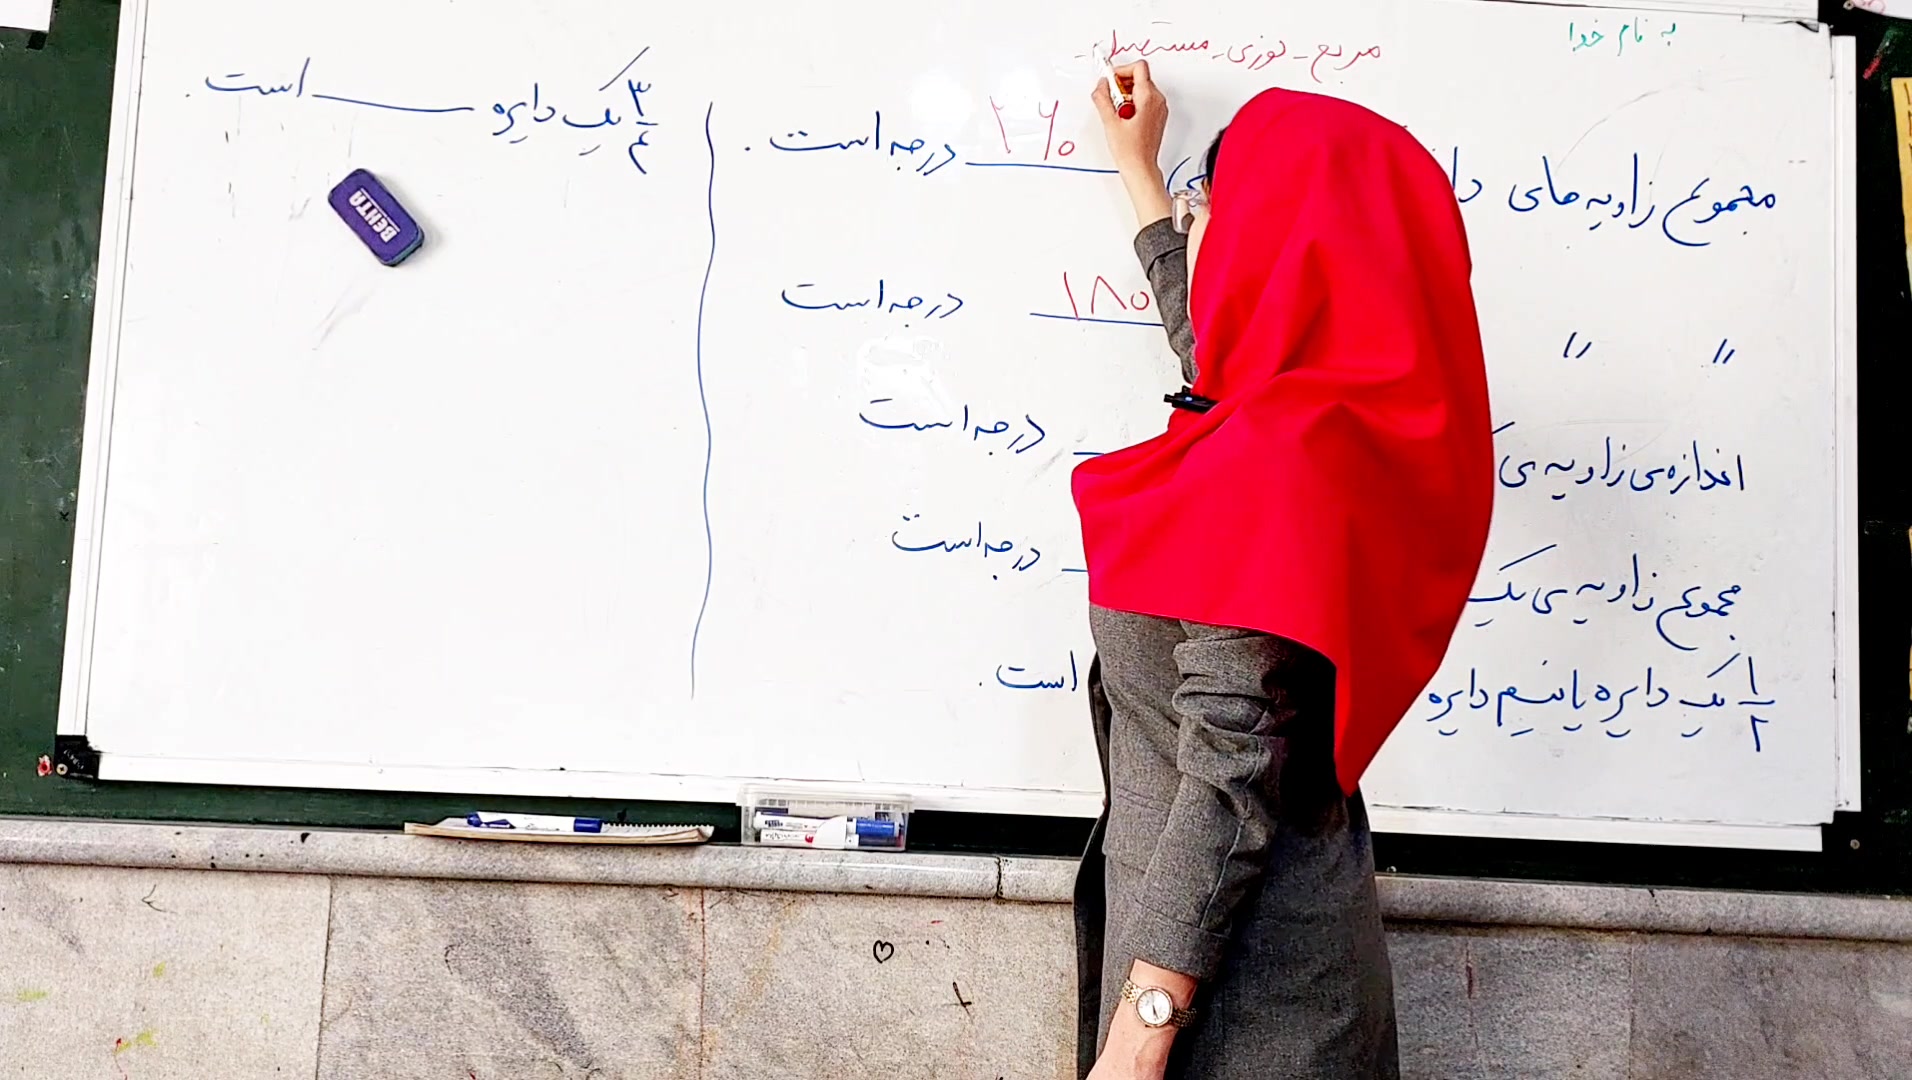 به نام خدا
مربع - لوزی - مستطیل -
مجموع زاویه های ۳۶۰ درجه است .
" " ۱۸۰ درجه است
اندازه ی زاویه ی درجه است
مجموع زاویه ی یک درجه است
۱/۲ یک دایره یا نیم دایره است .
۳/۴ یک دایره ____ است .
BEHTA